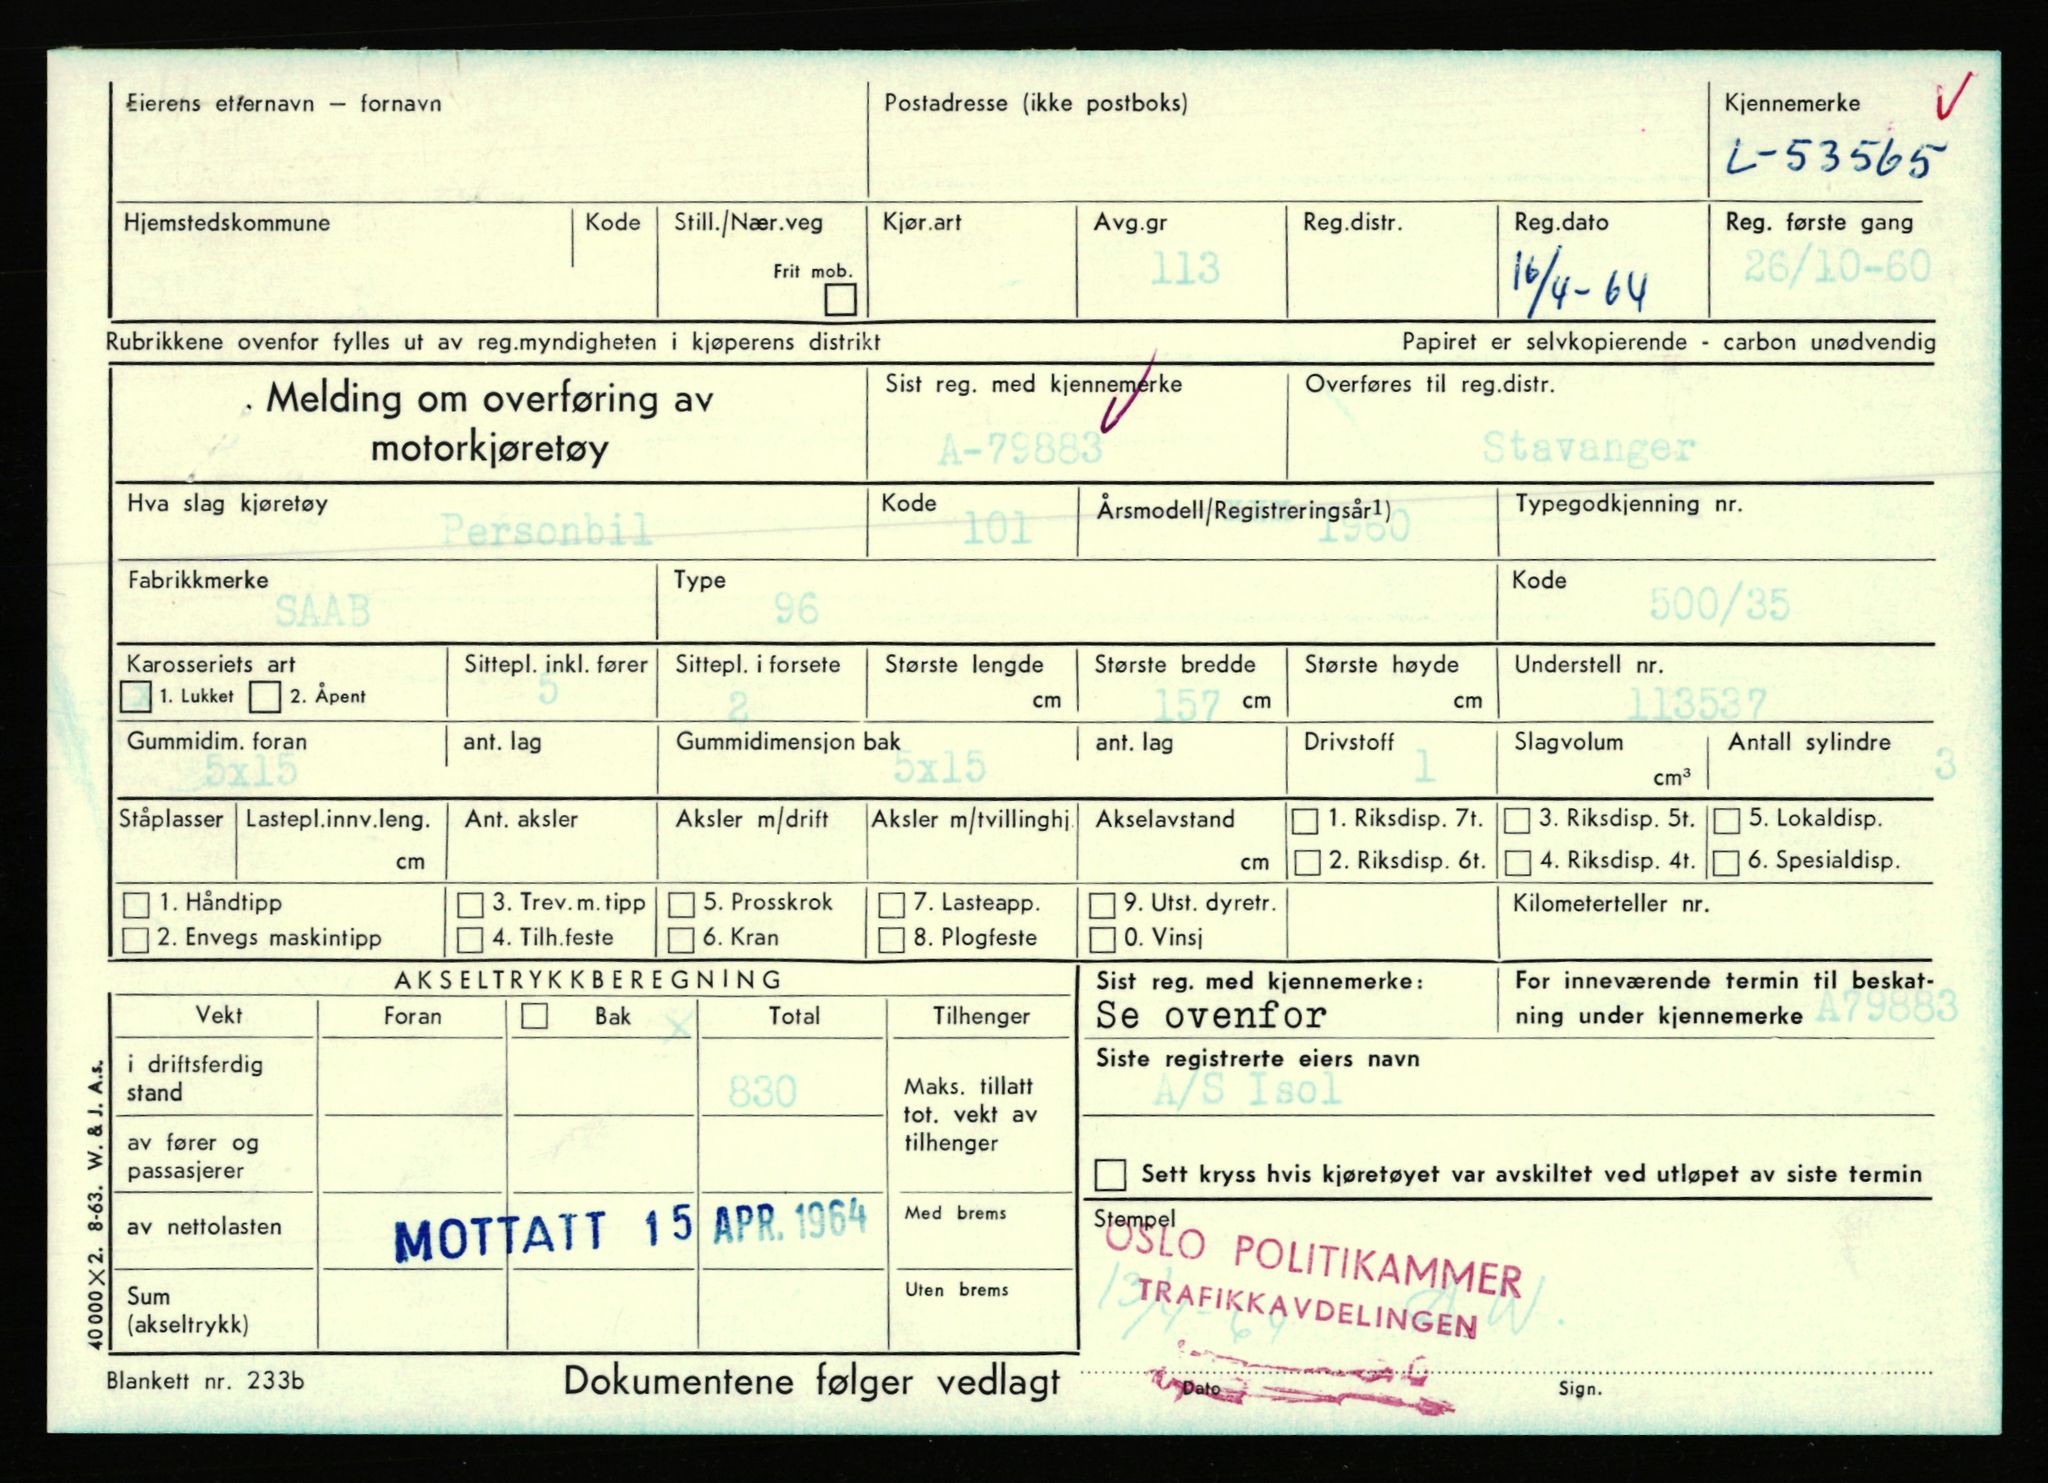 Eierens etternavn – fornavn
Postadresse (ikke postboks)
Kjennemerke
L-53565
Hjemstedskommune
Kode
Still./Nær.veg
Frit mob.
Kjør.art
Avg.gr
113
Reg.distr.
Reg.dato
16/4-64
Reg. første gang
26/10-60
Rubrikkene ovenfor fylles ut av reg.myndigheten i kjøperens distrikt
Papiret er selvkopierende - carbon unødvendig
Melding om overføring av
motorkjøretøy
Sist reg. med kjennemerke
A-79883
Overføres til reg.distr.
Stavanger
Hva slag kjøretøy
Personbil
Kode
101
Årsmodell/Registreringsår1)
1960
Typegodkjenning nr.
Fabrikkmerke
SAAB
Type
96
Kode
500/35
Karosseriets art
x 1. Lukket 2. Åpent
Sittepl. inkl. fører
5
Sittepl. i forsete
2
Største lengde
cm
Største bredde
157 cm
Største høyde
cm
Understell nr.
113537
Gummidim. foran
5x15
ant. lag
Gummidimensjon bak
5x15
ant. lag
Drivstoff
1
Slagvolum
cm³
Antall sylindre
3
Ståplasser
Lastepl.innv.leng.
cm
Ant. aksler
Aksler m/drift
Aksler m/tvillinghj.
Akselavstand
cm
1. Riksdisp. 7t.
2. Riksdisp. 6t.
3. Riksdisp. 5t.
4. Riksdisp. 4t.
5. Lokaldisp.
6. Spesialdisp.
1. Håndtipp
2. Envegs maskintipp
3. Trev.m.tipp
4. Tilh.feste
5. Prosskrok
6. Kran
7. Lasteapp.
8. Plogfeste
9. Utst. dyretr.
0. Vinsj
Kilometerteller nr.
AKSELTRYKKBEREGNING
Vekt
Foran
Bak
x
Total
Tilhenger
i driftsferdig
stand
830
Maks. tillatt
tot. vekt av
tilhenger
av fører og
passasjerer
av nettolasten
Med brems
MOTTATT 15 APR. 1964
Sum
(akseltrykk)
Uten brems
Sist reg. med kjennemerke:
Se ovenfor
For inneværende termin til beskat-
ning under kjennemerke A79883
Siste registrerte eiers navn
A/S Isol
Sett kryss hvis kjøretøyet var avskiltet ved utløpet av siste termin
Stempel
OSLO POLITIKAMMER
TRAFIKKAVDELINGEN
13/4-64
Dato
Sign.
40 000 X 2. 8-63. W. & J. A.s.
Blankett nr. 233b
Dokumentene følger vedlagt